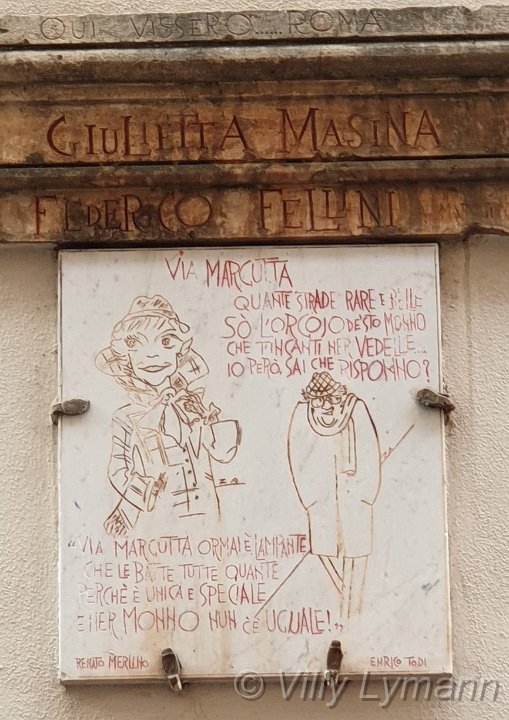 QUI VISSERO...... ROMA
GIULIETTA MASINA
FEDERICO FELLINI
VIA MARGUTTA
QUANTE STRADE RARE E BELLE
SÒ L'ORGOJO DE STO MONNO
CHE T'INCANTI NER VEDELLE....
IO PERÒ, SAI CHE RISPONNO?
"VIA MARGUTTA ORMAI È LAMPANTE
CHE LE BATTE TUTTE QUANTE
PERCHÈ È UNICA E SPECIALE
E NER MONNO NUN C'È UGUALE!"
RENATO MERLINO
ENRICO TODI
© Villy Lymann